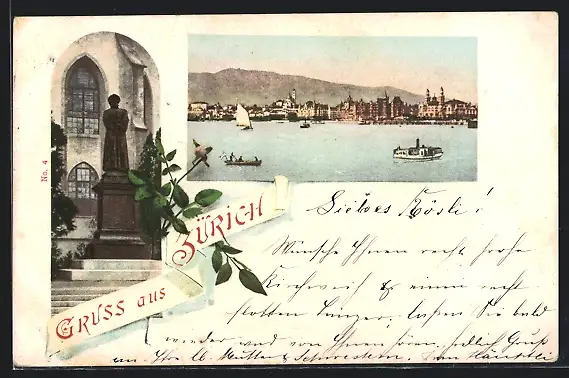 No. 4
GRUSS aus
ZÜRICH
Liebes Rösli!
Wünsche Ihnen recht frohe
Kirchweih & einen recht
flotten Tänzer; lassen Sie bald
wieder was von Ihnen hören. Gruß
an Mutter & Schwestern.